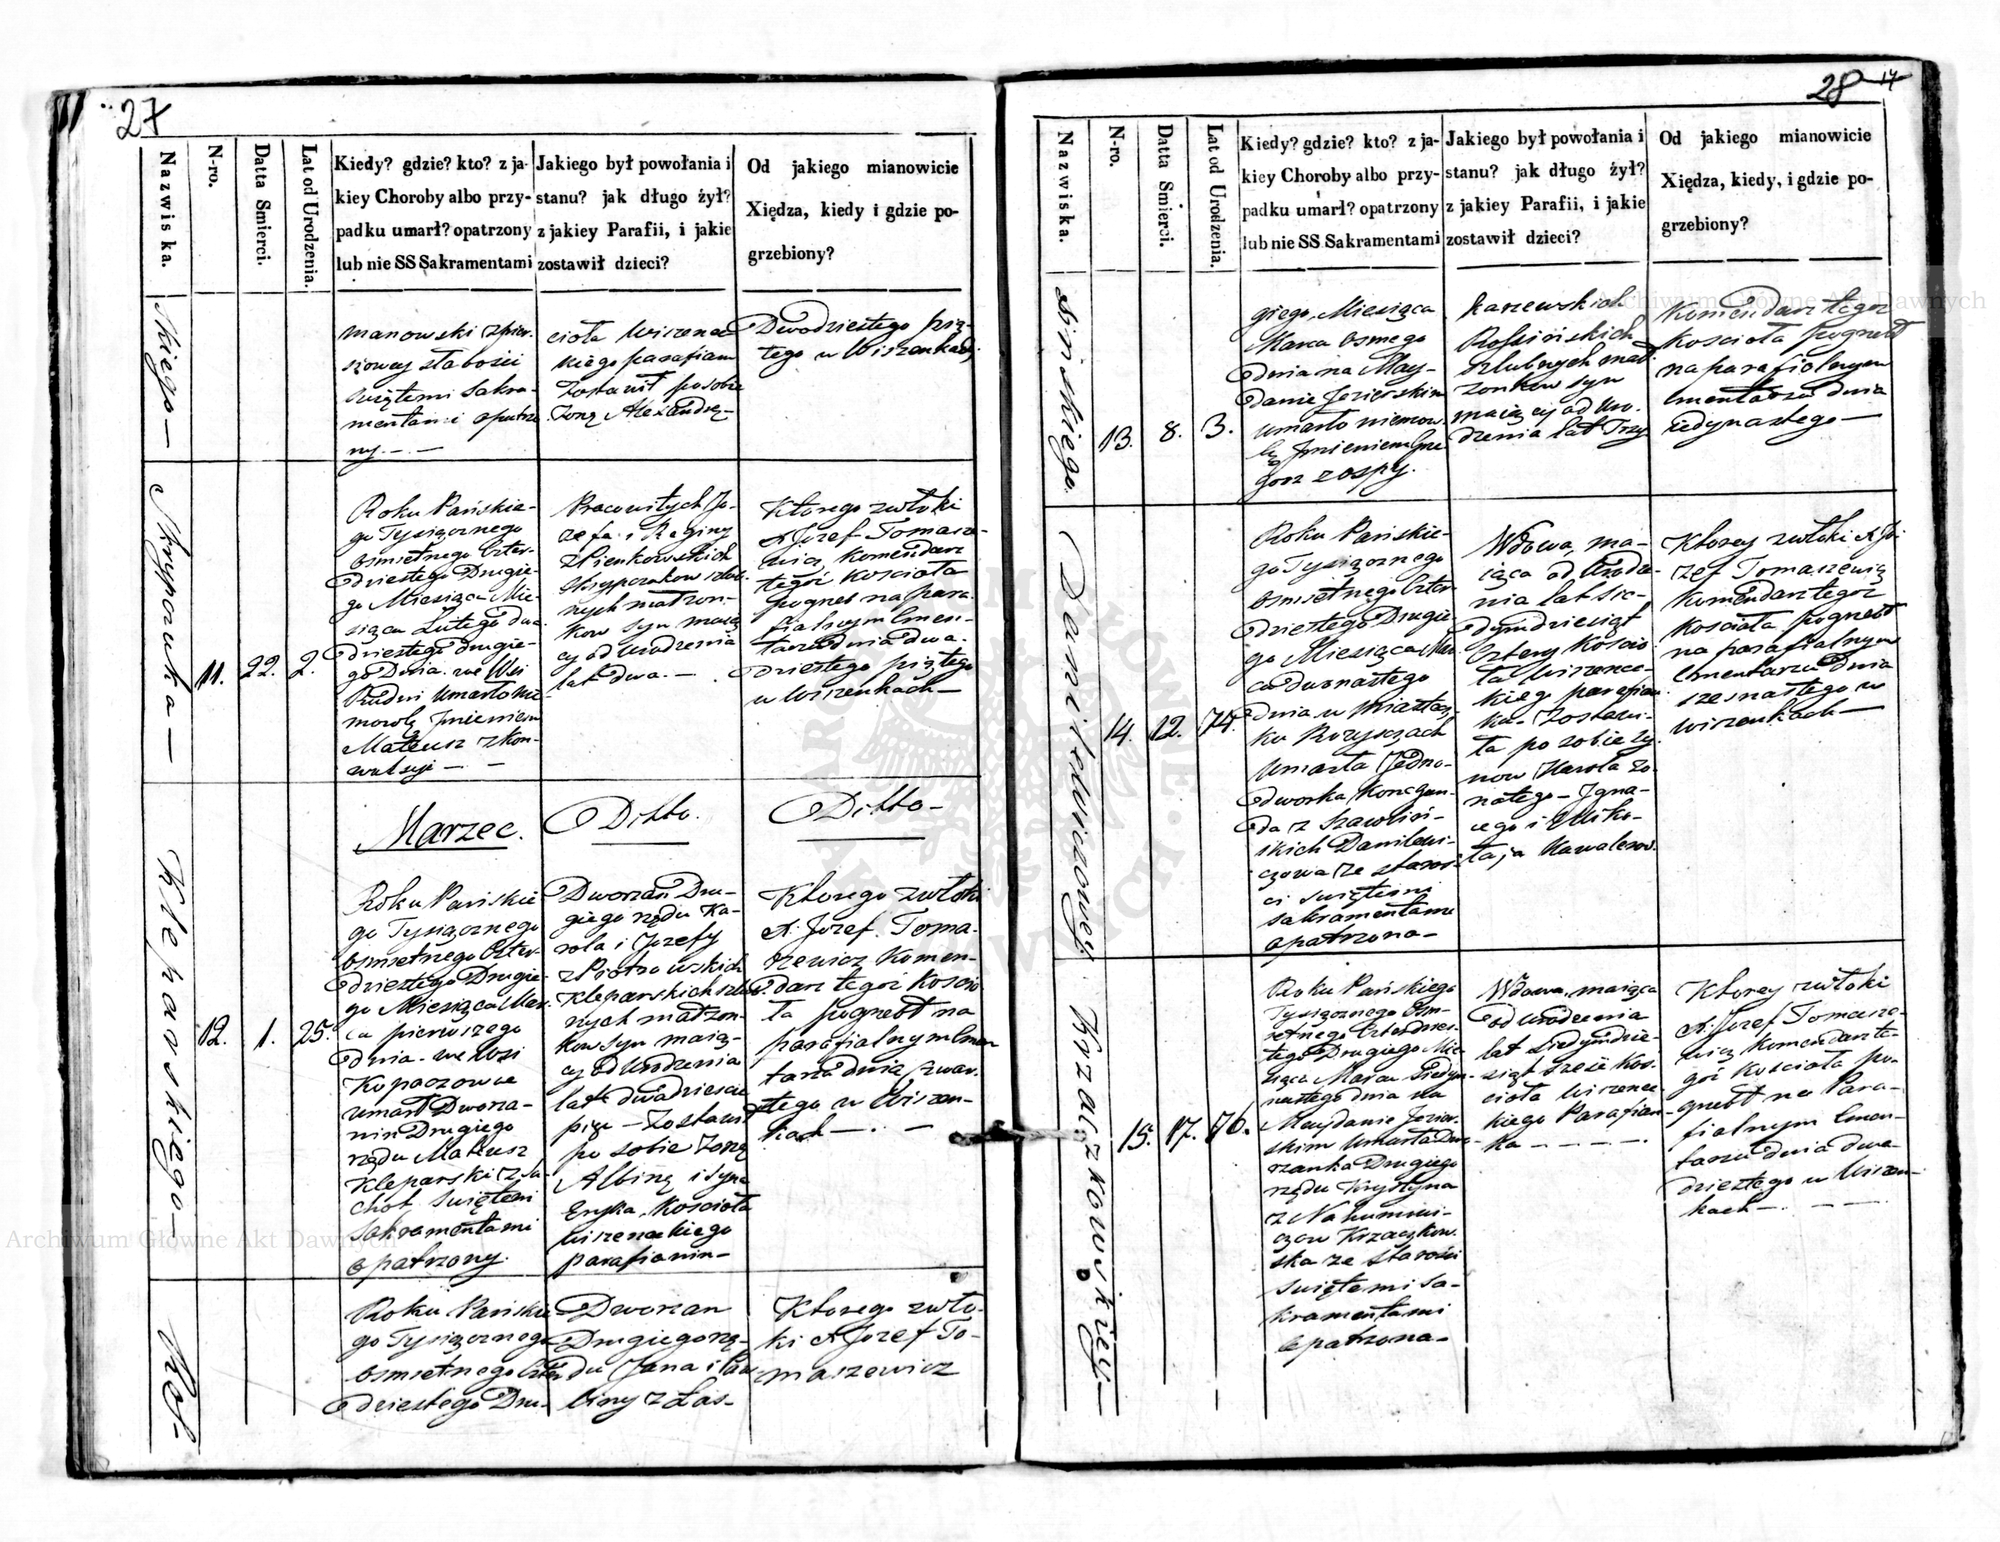 27
Nazwiska.
N-ro.
Datta Smierci.
Lat od Urodzenia.
Kiedy? gdzie? kto? z ja-
kiey Choroby albo przy-
padku umarł? opatrzony
lub nie SS Sakramentami
Jakiego był powołania i
stanu? jak długo żył?
z jakiey Parafii, i jakie
zostawił dzieci?
Od jakiego mianowicie
Xiędza, kiedy i gdzie po-
grzebiony?
skiego —
manowski z pier-
siowey słabości
świętemi Sakra-
mentami opatrzo
ny. — —
cioła Wiszenec
kiego parafianin
Zostawił po sobie
Zonę Alexandrę —
Dwudziestego pią-
tego w Wiszenkach
Skrypczuka —
11.
22.
2.
Roku Pańskie-
go Tysiącznego
Osmsetnego Czter-
dziestego Drugie-
go Miesiąca Mie-
siąca Lutego dwu
dziestego drugie-
go Dnia we Wsi
Rudni Umarło nie
mowlę Imieniem
Mateusz z kon-
wulsyi — —
Pracowitych Jo-
zefa i Reginy
z Pienkowskich
Skrypczukow szlub-
nych małżon-
kow syn mają
cy od Urodzenia
lat dwa. — .
Ktorego zwłoki
X Jozef Tomasze-
wicz Komendarz
tegóż Kościoła
pogrzeb na para-
fialnym Cmen-
tarzu dnia dwu-
dziestego piątego
w Wiszenkach —
Marzec.
Ditto.
Ditto —
Kleparskiego —
12.
1.
25.
Roku Pańskie
go Tysiącznego
Osmsetnego Czter-
dziestego Drugie-
go Miesiąca Mar-
ca pierwszego
dnia we Wsi
Kopaczowce
umarł Dworza-
nin Drugiego
rzędu Mateusz
Kleparski z Su-
chot Świętemi
Sakramentami
Opatrzony.
Dworzan Dru-
giego rzędu Ka-
rola i Jozefy
z Piotrowskich
Kleparskich szlub-
nych małżon-
kow syn mają-
cy od Urodzenia
lat dwadziescia
pięc — Zostawił
po sobie Zonę
Albinę i syna
Eryka, Kościoła
Wiszeneckiego
parafianin —
Ktorego zwłoki
X. Jozef Toma-
szewicz Komen-
darz tegóż Kościo
ła pogrzebł na
parafialnym Cmen
tarzu dnia czwar-
tego w Wiszen-
kach — . —
Ros-
Roku Pańskie
go Tysiącznego
Osmsetnego Czter
dziestego Dru-
Dworzan
Drugiego rzę-
du Jana i Pau
liny z Łas-
Ktorego zwło-
ki X Jozef To-
maszewicz
28
14
Nazwiska.
N-ro.
Datta Smierci.
Lat od Urodzenia.
Kiedy? gdzie? kto? z ja-
kiey Choroby albo przy-
padku umarł? opatrzony
lub nie SS Sakramentami
Jakiego był powołania i
stanu? jak długo żył?
z jakiey Parafii, i jakie
zostawił dzieci?
Od jakiego mianowicie
Xiędza, kiedy, i gdzie po-
grzebiony?
sinskiego.
13.
8.
3.
giego, Miesiąca
Marca Osmego
dnia na May-
danie Jezierskim
umarło niemow-
lę Imieniem Grze
gorz z ospy.
karzewskich
Rossińskich
szlubnych mał-
zonkow syn
maiący od Uro-
dzenia lat Trzy
Komendarz tegoz
Kościoła pogrzebł
na parafialnym
Cmentarzu dnia
iedynastego —
Danilewiczowey
14.
12.
74.
Roku Pańskie-
go Tysiącznego
Osmsetnego Czter-
dziestego Drugie-
go Miesiąca Mar
ca dwunastego
dnia w Miastecz-
ku Rożyszczach
Umarła Jedno-
dworka Kunegun-
da z Szawliń-
skich Danilewi-
czowa ze staroś-
ci świętemi
Sakramentami
opatrzona —
Wdowa, ma-
iąca od Urodze-
nia lat sie-
dymdziesiąt
Cztery Koscio
ła Wiszenec-
kiego parafian-
ka — Zostawi-
ła po sobie sy-
now Karola Zo-
natego — Igna-
cego i Miko-
łaja Kawalerow.
Ktorey zwłoki X Jo
zef Tomaszewicz
Komendarz tegoz
Kościoła pogrzebł
na parafialnym
Cmentarzu dnia
szesnastego w
Wiszenkach —
Krzaczkowskiey —
15.
17.
76.
Roku Pańskiego
Tysiącznego Osm-
setnego Czterdzies-
tego Drugiego Mie
siąca Marca Siedym-
nastego dnia na
Maydanie Jezier-
skim Umarła Dwo-
rzanka Drugiego
rzędu Krystyna
z Nahumowi-
czow Krzaczkow-
ska ze starości
świętemi Sa-
kramentami
opatrzona —
Wdowa, maiąca
od Urodzenia
lat siedymdzie-
siąt szesc Koś-
cioła Wiszenec
kiego Parafian-
ka — — — .
Ktorey zwłoki
X. Jozef Tomasze-
wicz Komendarz te-
góż Kościoła po-
grzebł na Para-
fialnym Cmen-
tarzu dnia dwu-
dziestego w Wiszen-
kach — . — —
Archiwum Główne Akt Dawnych
Archiwum Główne Akt Dawnych